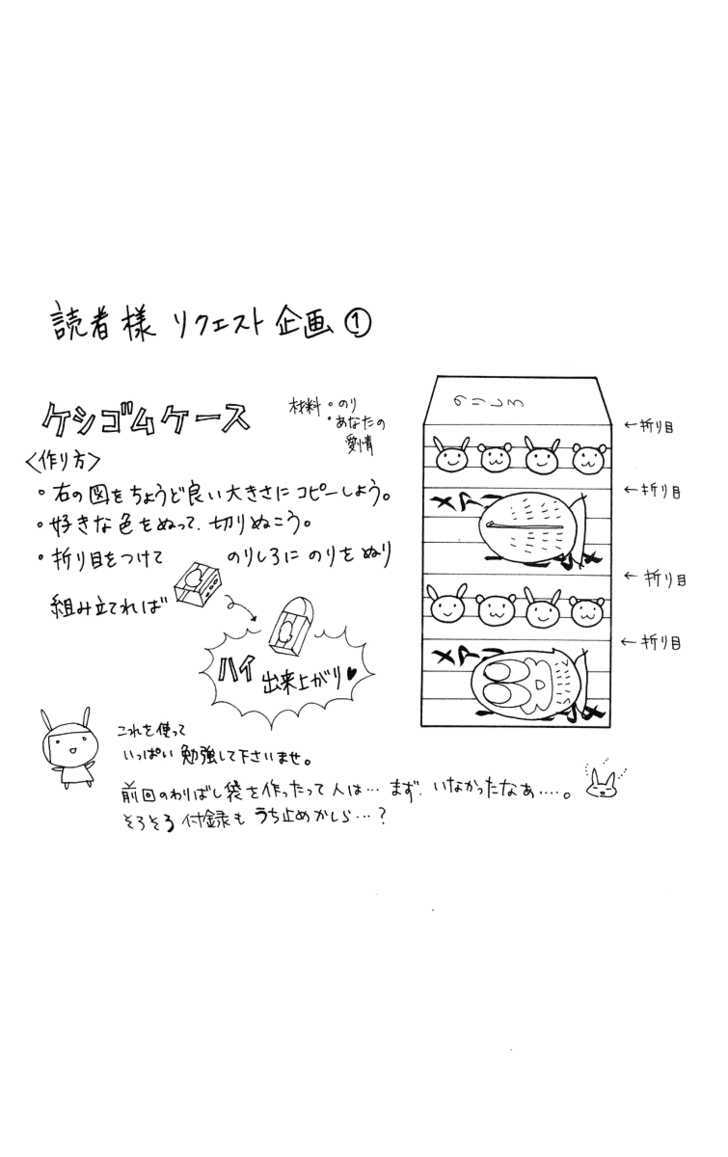 読者様 リクエスト 企画①
ケシゴムケース
材料 ・のり
・あなたの
愛情
〈作り方〉
・右の図をちょうど良い大きさにコピーしよう。
・好きな色をぬって、切りぬこう。
・折り目をつけて のりしろに のりをぬり
組み立てれば
ハイ 出来上がり♥
のりしろ
←折り目
←折り目
メアリ
←折り目
←折り目
メアリ
これを使って
いっぱい勉強して下さいませ。
前回のわりばし袋を作ったって人は…まず、いなかったなぁ….。
そろそろ付録もうち止めかしら…?